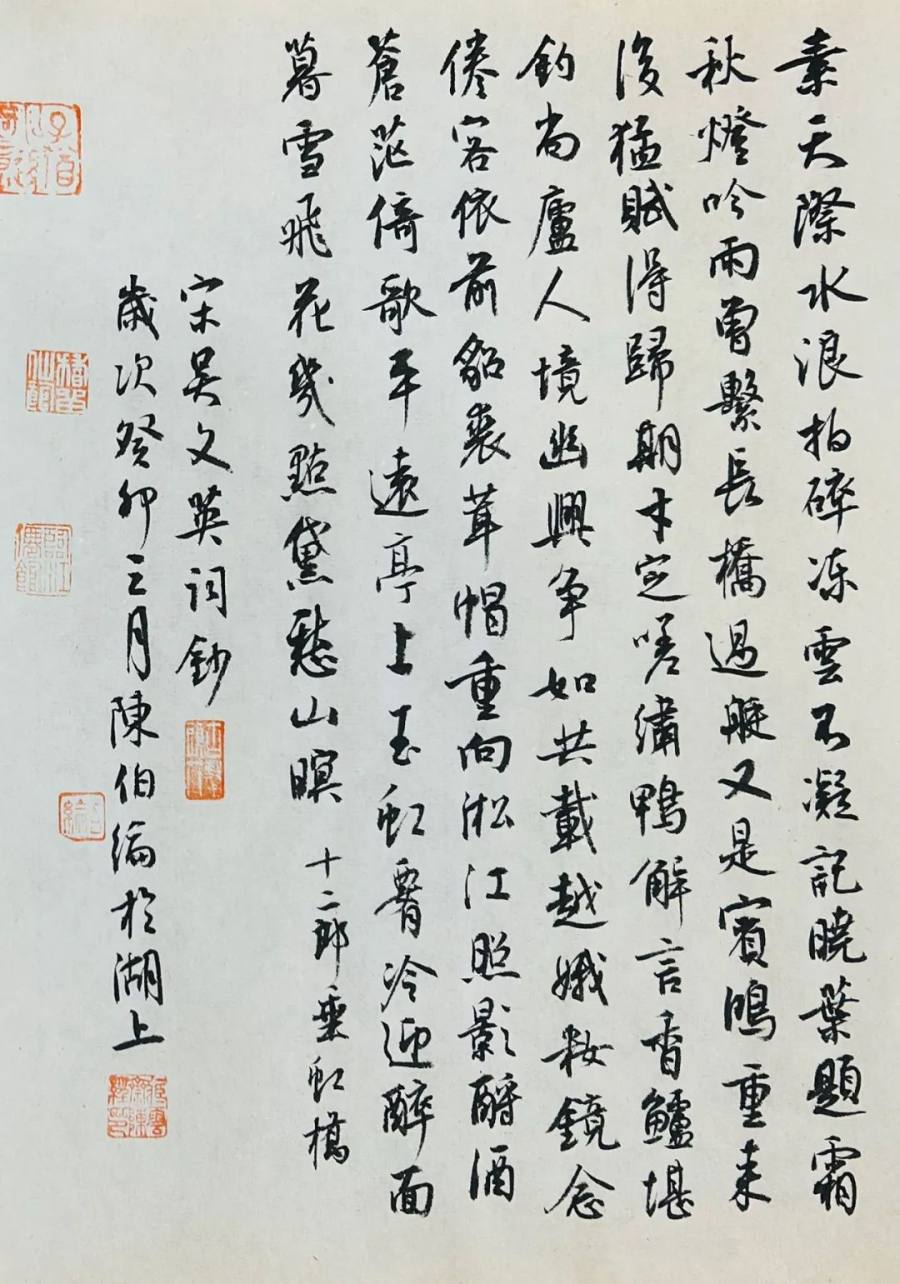 素天際水浪拍碎凍雲不凝記曉葉題霜
秋燈吟雨曾繫長橋過艇又是賓鴻重來
後猛賦得歸期才定嗟繡鴨解言香鱸堪
釣尚廬人境幽興爭如共載越娥妝鏡念
倦客依前貂裘茸帽重向淞江照影酹酒
蒼茫倚歌平遠亭上玉虹腰冷迎醉面
暮雪飛花幾點黛愁山暝 十二郎垂虹橋
宋吳文英詞鈔
歲次癸卯三月陳伯綸於湖上